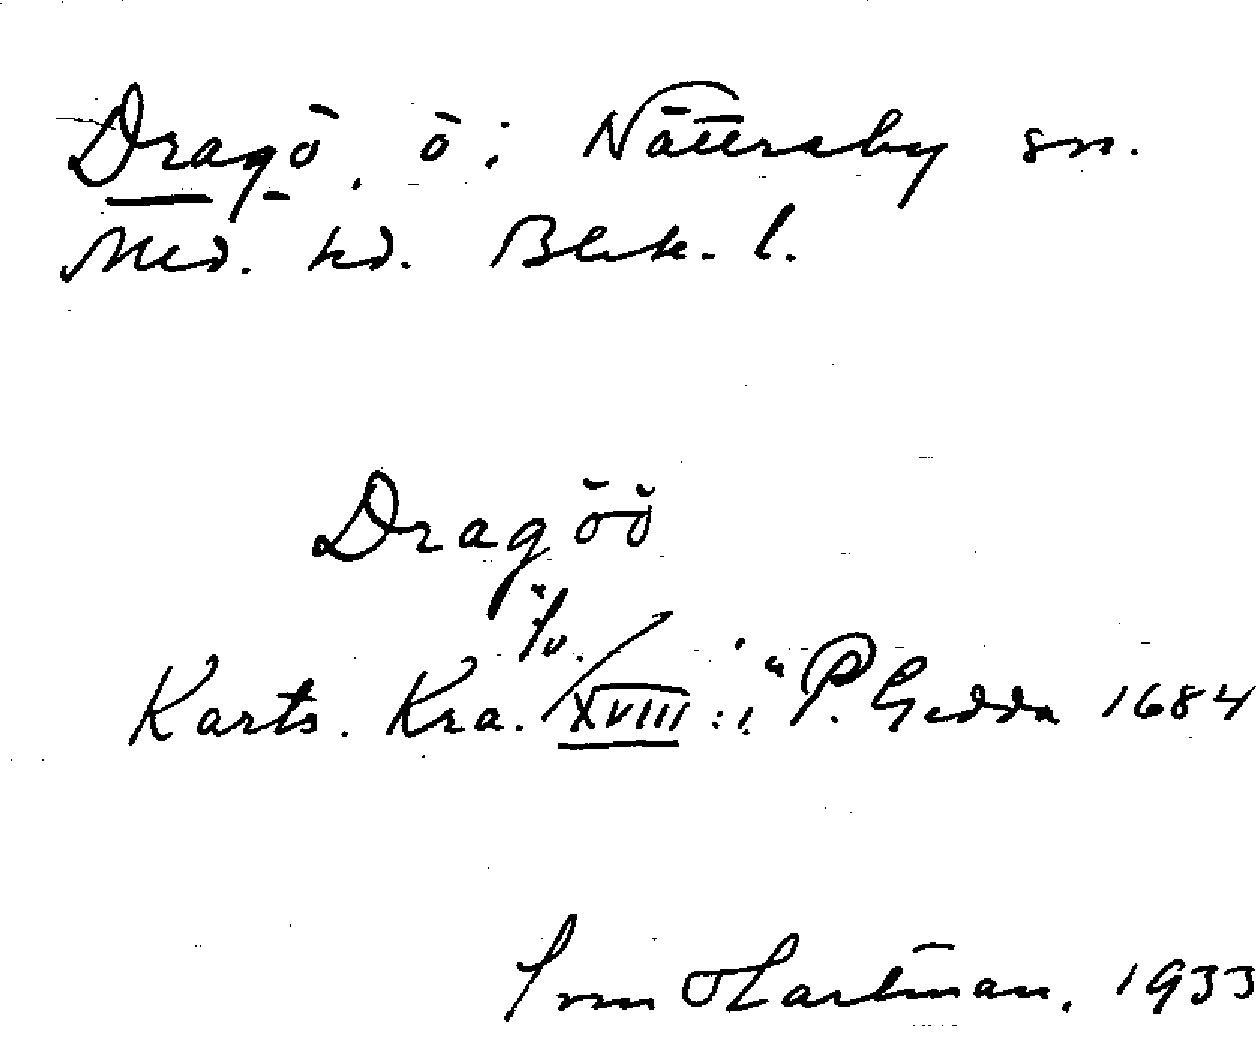 Dragö, ö i Nättraby sn.
Med. hd. Blek. l.
Dragöö
Karts. Kra. XVIII:1. P. Gedda 1684
Hartman, 1933